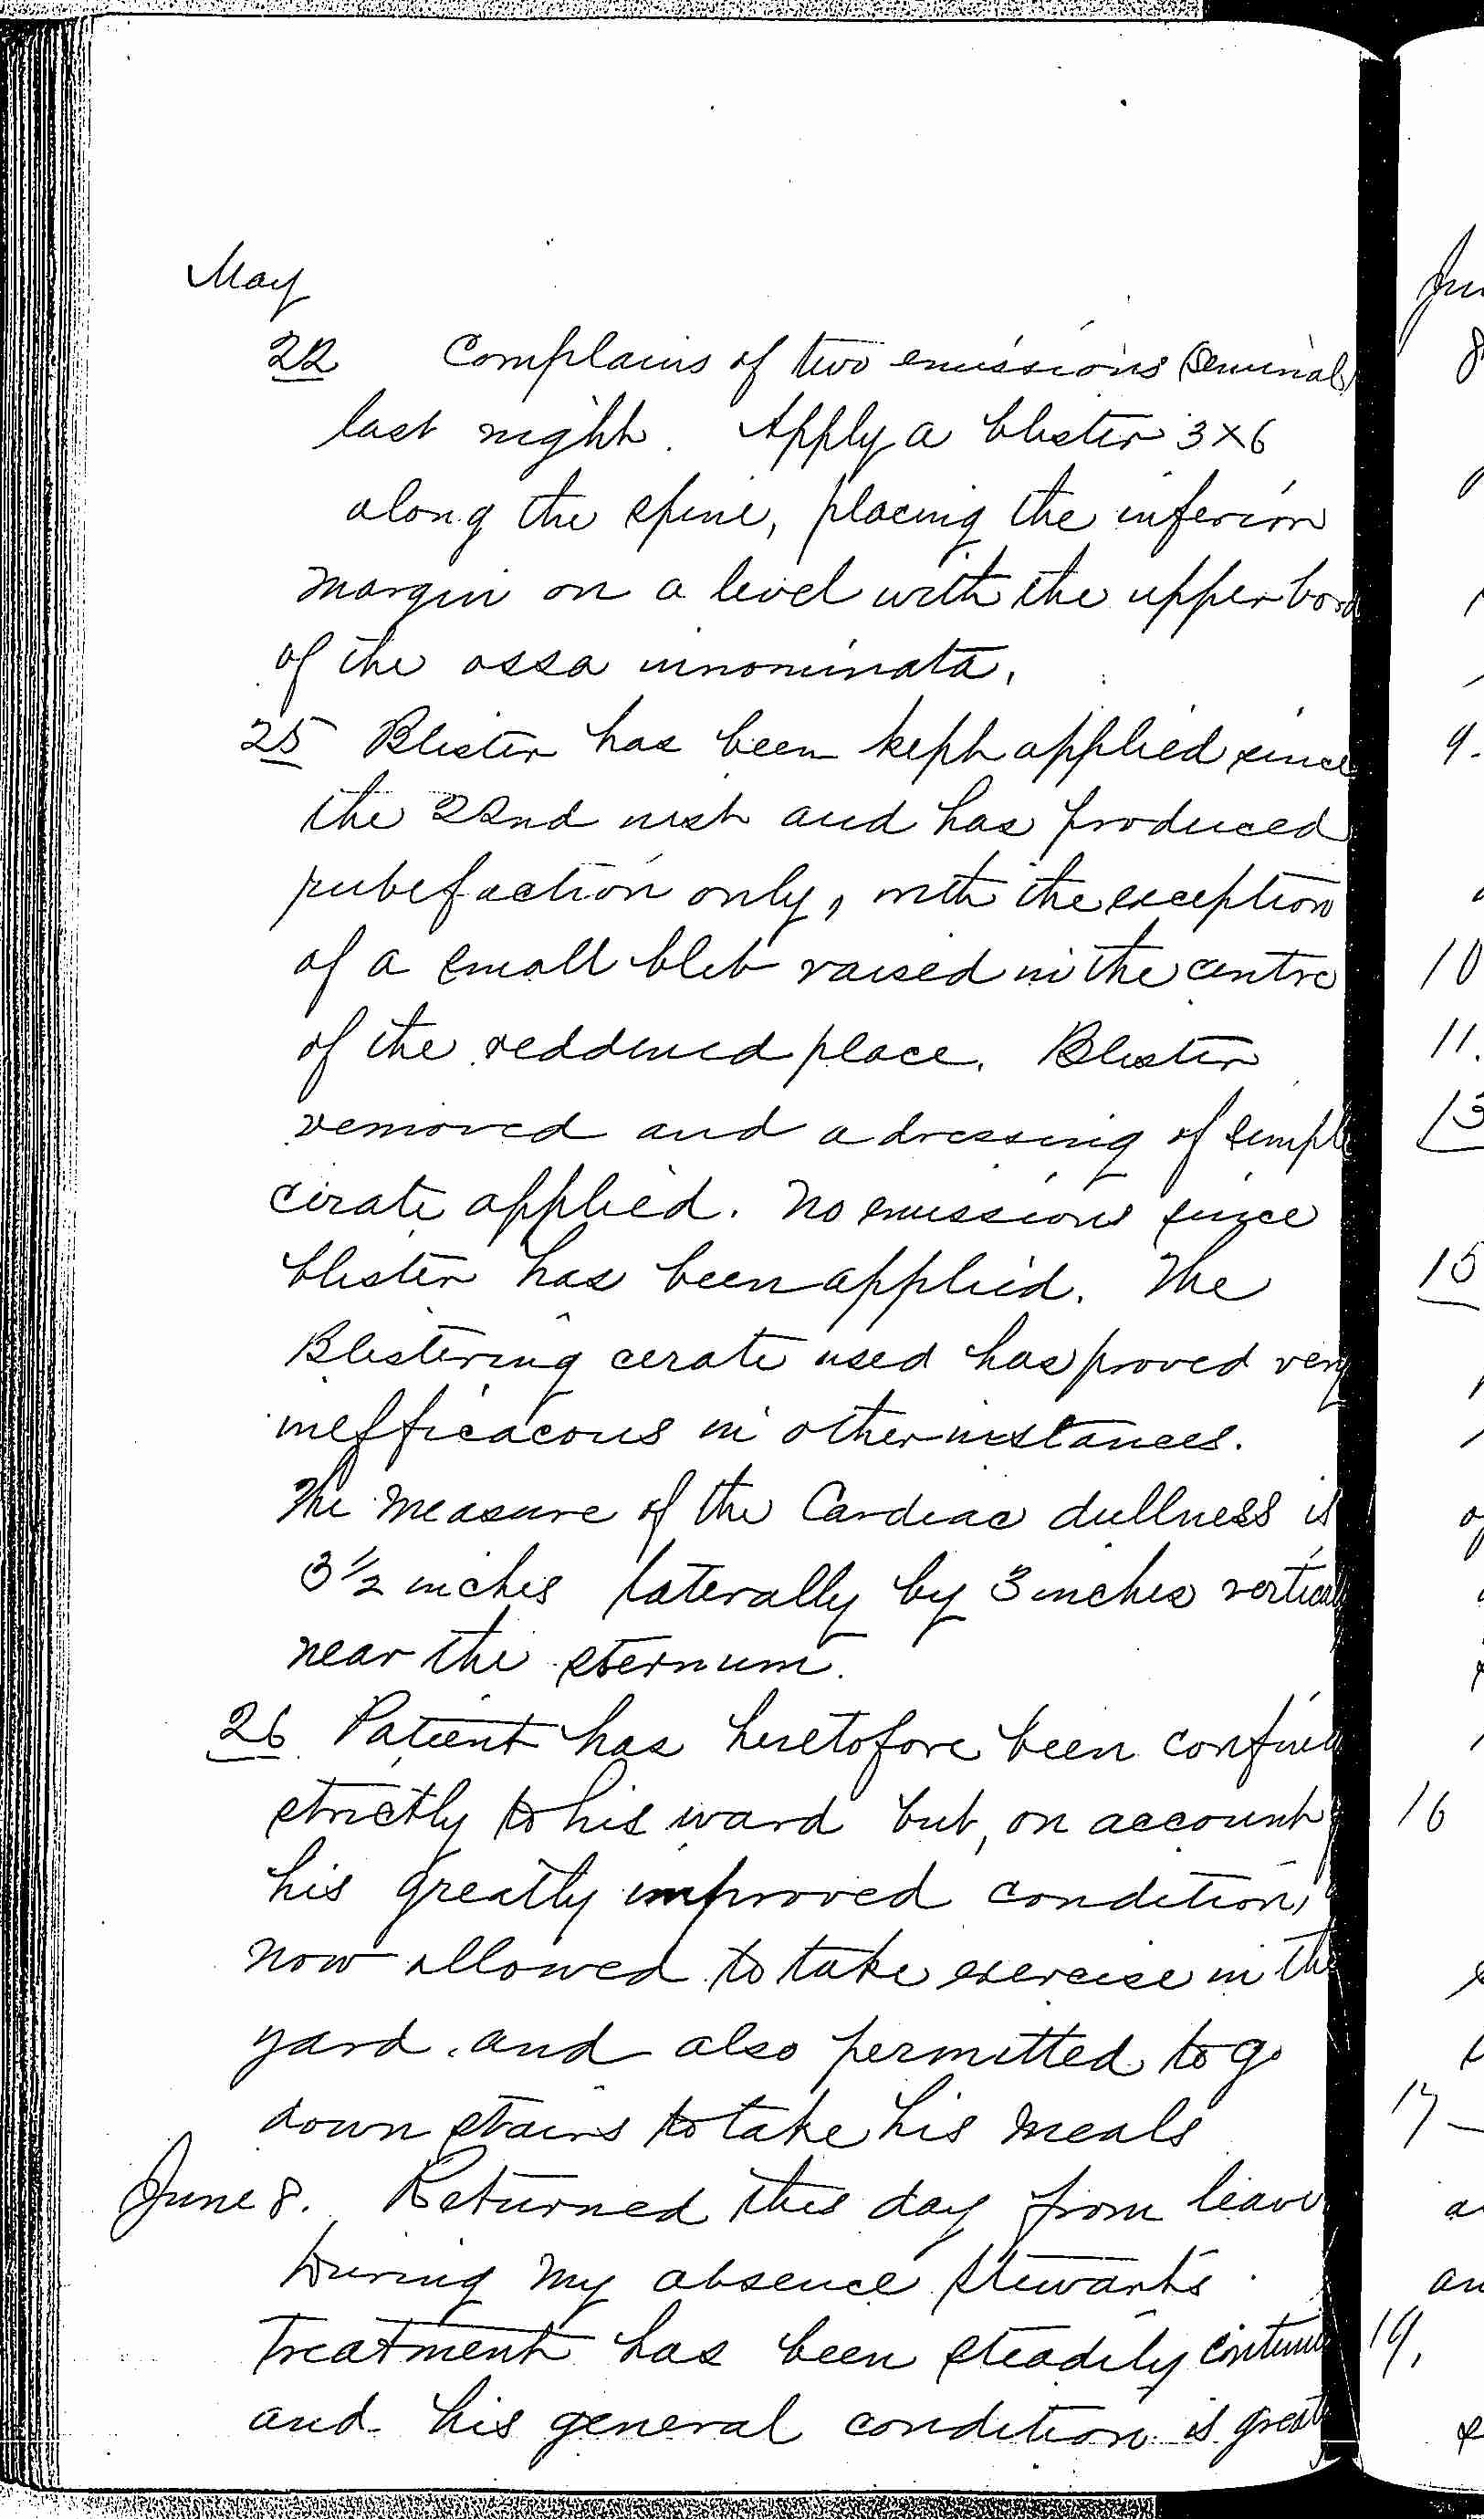 May
22 Complains of two emissions (Seminal)
last night. Apply a blister 3x6
along the spine, placing the inferior
margin on a level with the upper bord
of the ossa innominata.
25 Blister has been kept applied since
the 22nd inst and has produced
rubefaction only, with the exception
of a small bleb raised in the centre
of the reddened place. Blister
removed and a dressing of simple
cerate applied. No emissions since
blister has been applied. The
Blistering cerate used has proved very
inefficacous in other instances.
The measure of the Cardiac dullness is
3 1/2 inches laterally by 3 inches vertical
near the sternum.
26 Patient has heretofore been confined
strictly to his ward but, on account
his greatly improved condition,
now allowed to take exercise in the
yard. and also permitted to go
down stairs to take his meals
June 8. Returned this day from leave
During my absence Stewarts
treatment has been steadily continu
and his general condition is great
Jun
8
9.
10
11.
13
15
16
17
19.